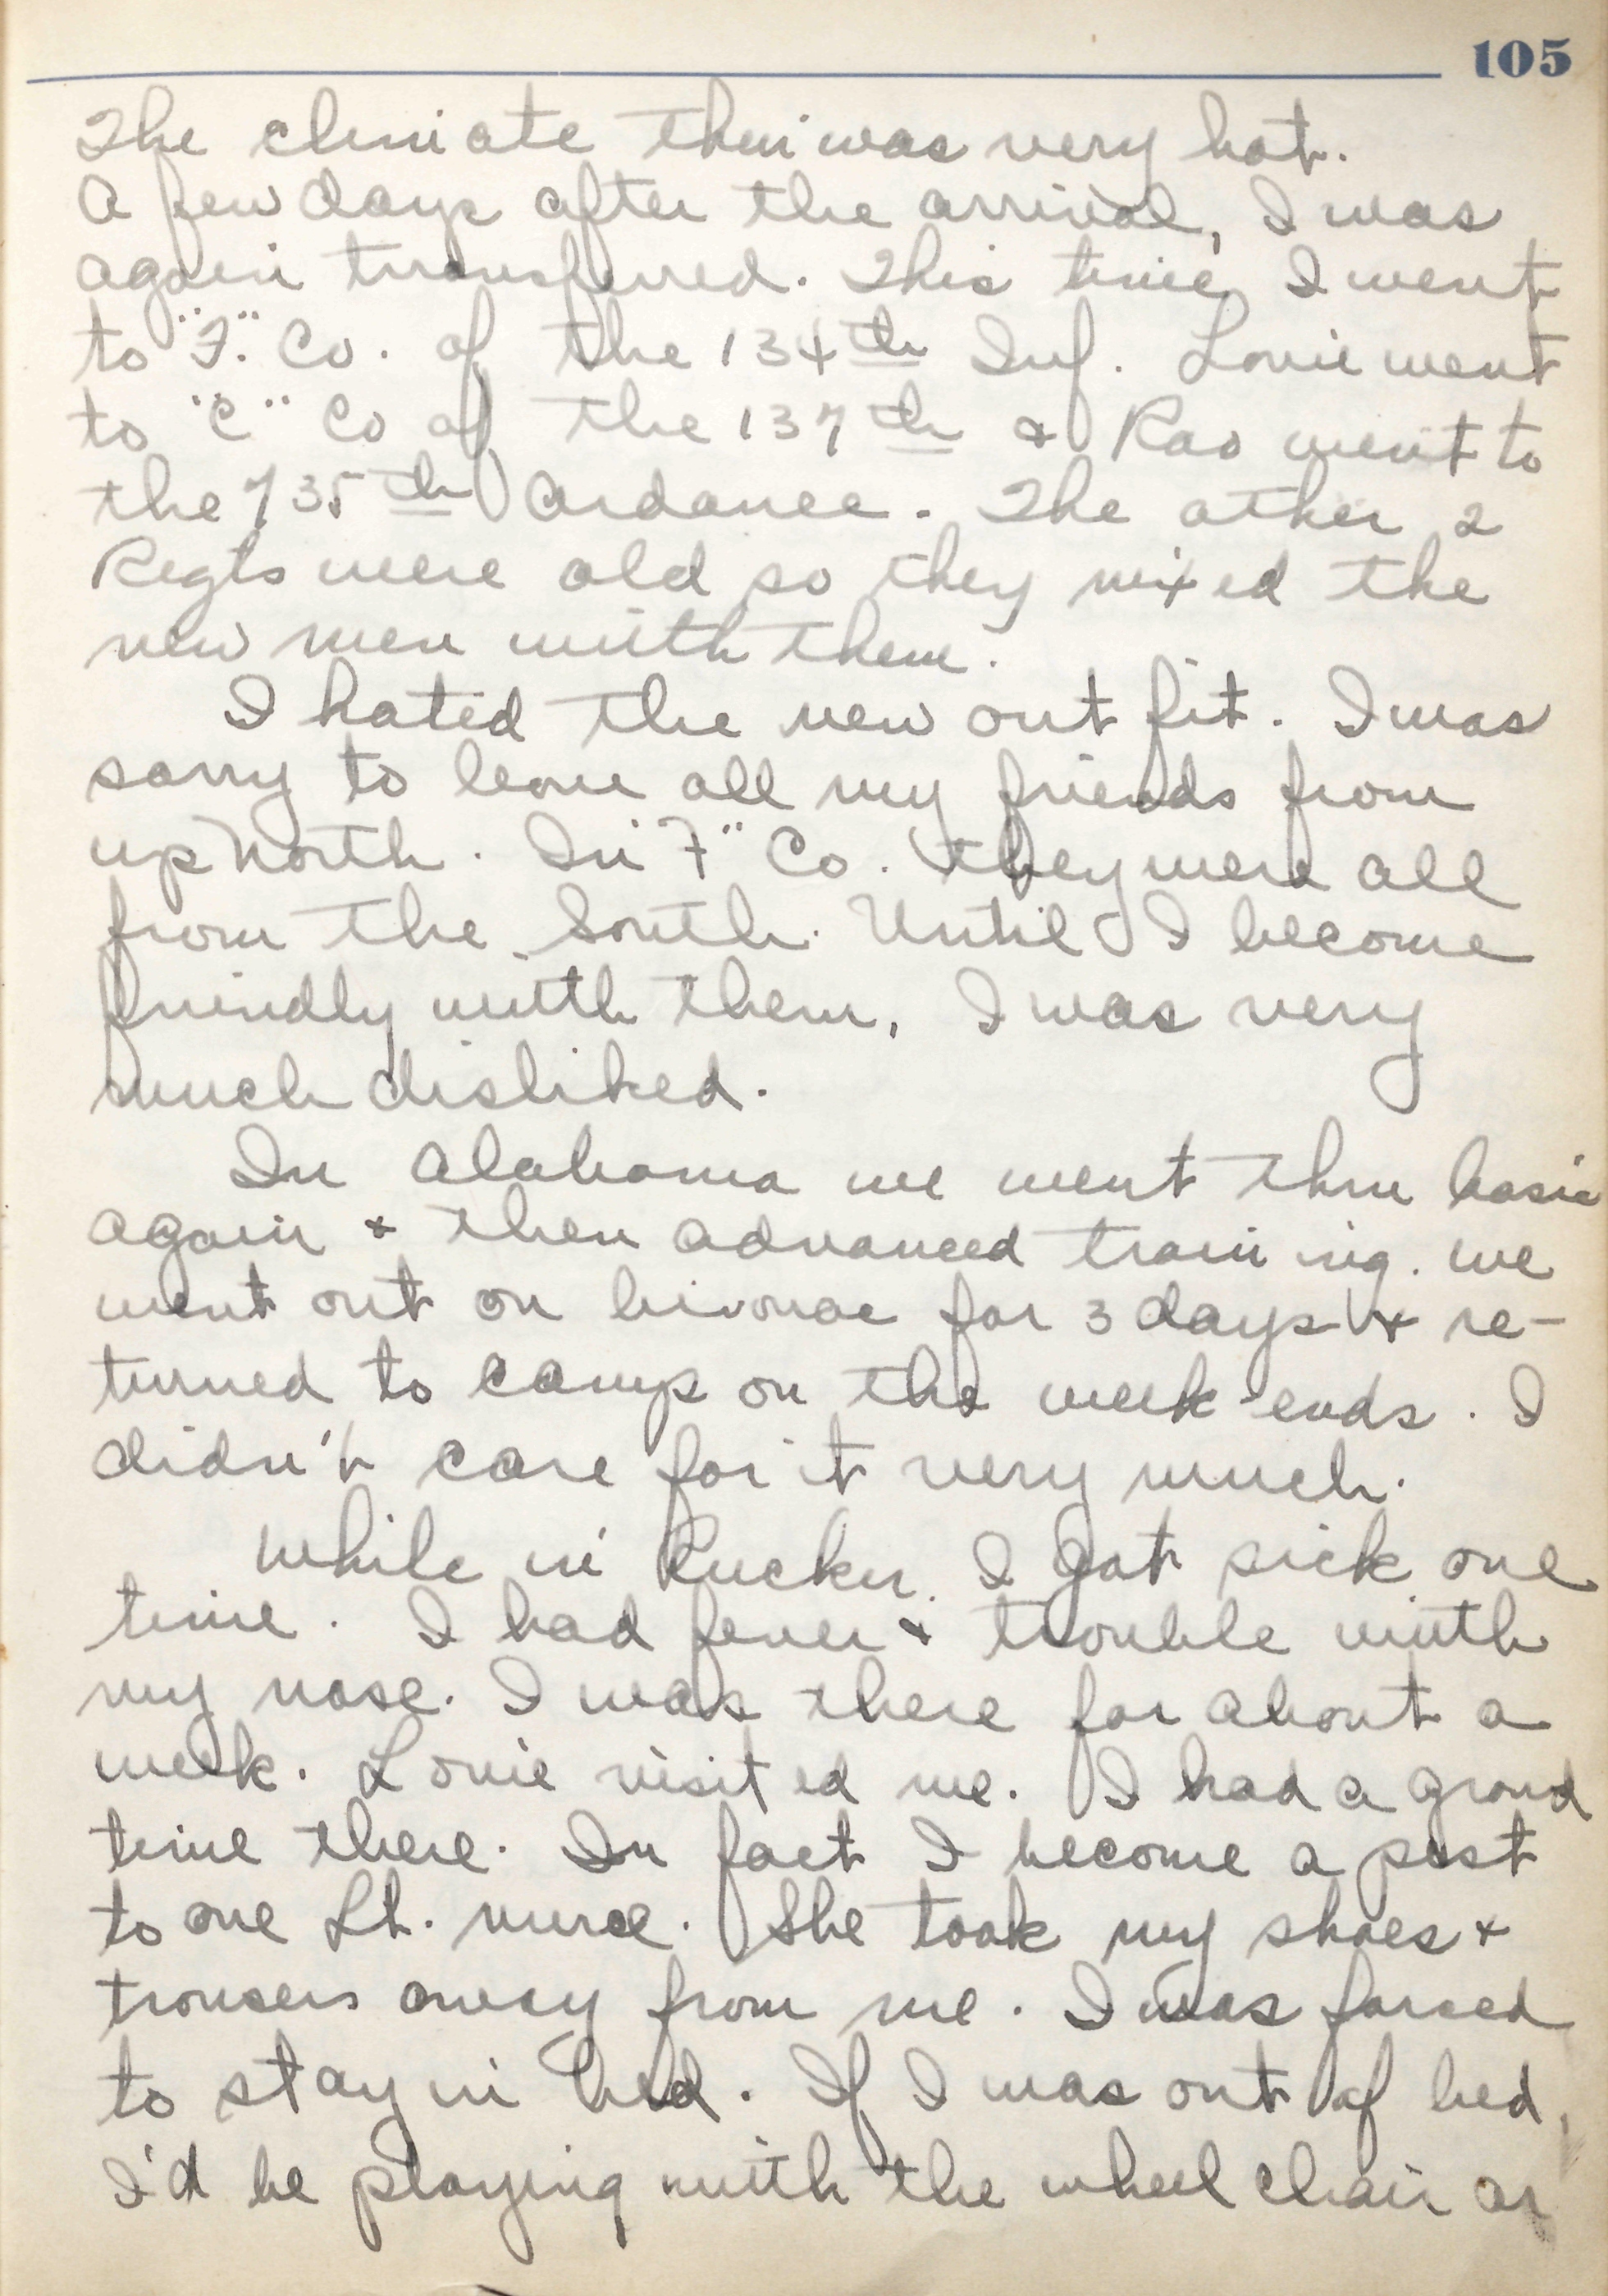 105
The climate their was very hot.
A few days after the arrival, I was
again transfurred. This time, I went
to "F." Co. of the 134th Inf. Louie went
to "C" Co of the 137th & Rao went to
the 735th Ordanee. The other 2
Regts were old so they mixed the
new men with them.
I hated the new out fit. I was
sorry to leave all my friends from
up North. In "F" Co. they were all
from the South. Until I become
friendly with them, I was very
much disliked.
In Alabama we went thru basic
again & then advanced training. we
went out on bivouac for 3 days & re-
turned to camp on the week ends. I
didn't care for it very much.
While in Rucker, I got sick one
time. I had fever & trouble with
my nose. I was there for about a
week. Louie visited me. I had a grand
time there. In fact I become a pest
to one Lt. nurse. She took my shoes &
trousers away from me. I was forced
to stay in bed. If I was out of bed,
I'd be playing with the wheel chair or